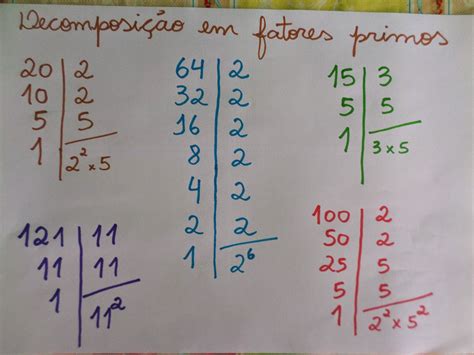 Decomposição em fatores primos
20 | 2
10 | 2
5 | 5
1 | 2² × 5
64 | 2
32 | 2
16 | 2
8 | 2
4 | 2
2 | 2
1 | 2⁶
15 | 3
5 | 5
1 | 3 × 5
121 | 11
11 | 11
1 | 11²
100 | 2
50 | 2
25 | 5
5 | 5
1 | 2² × 5²